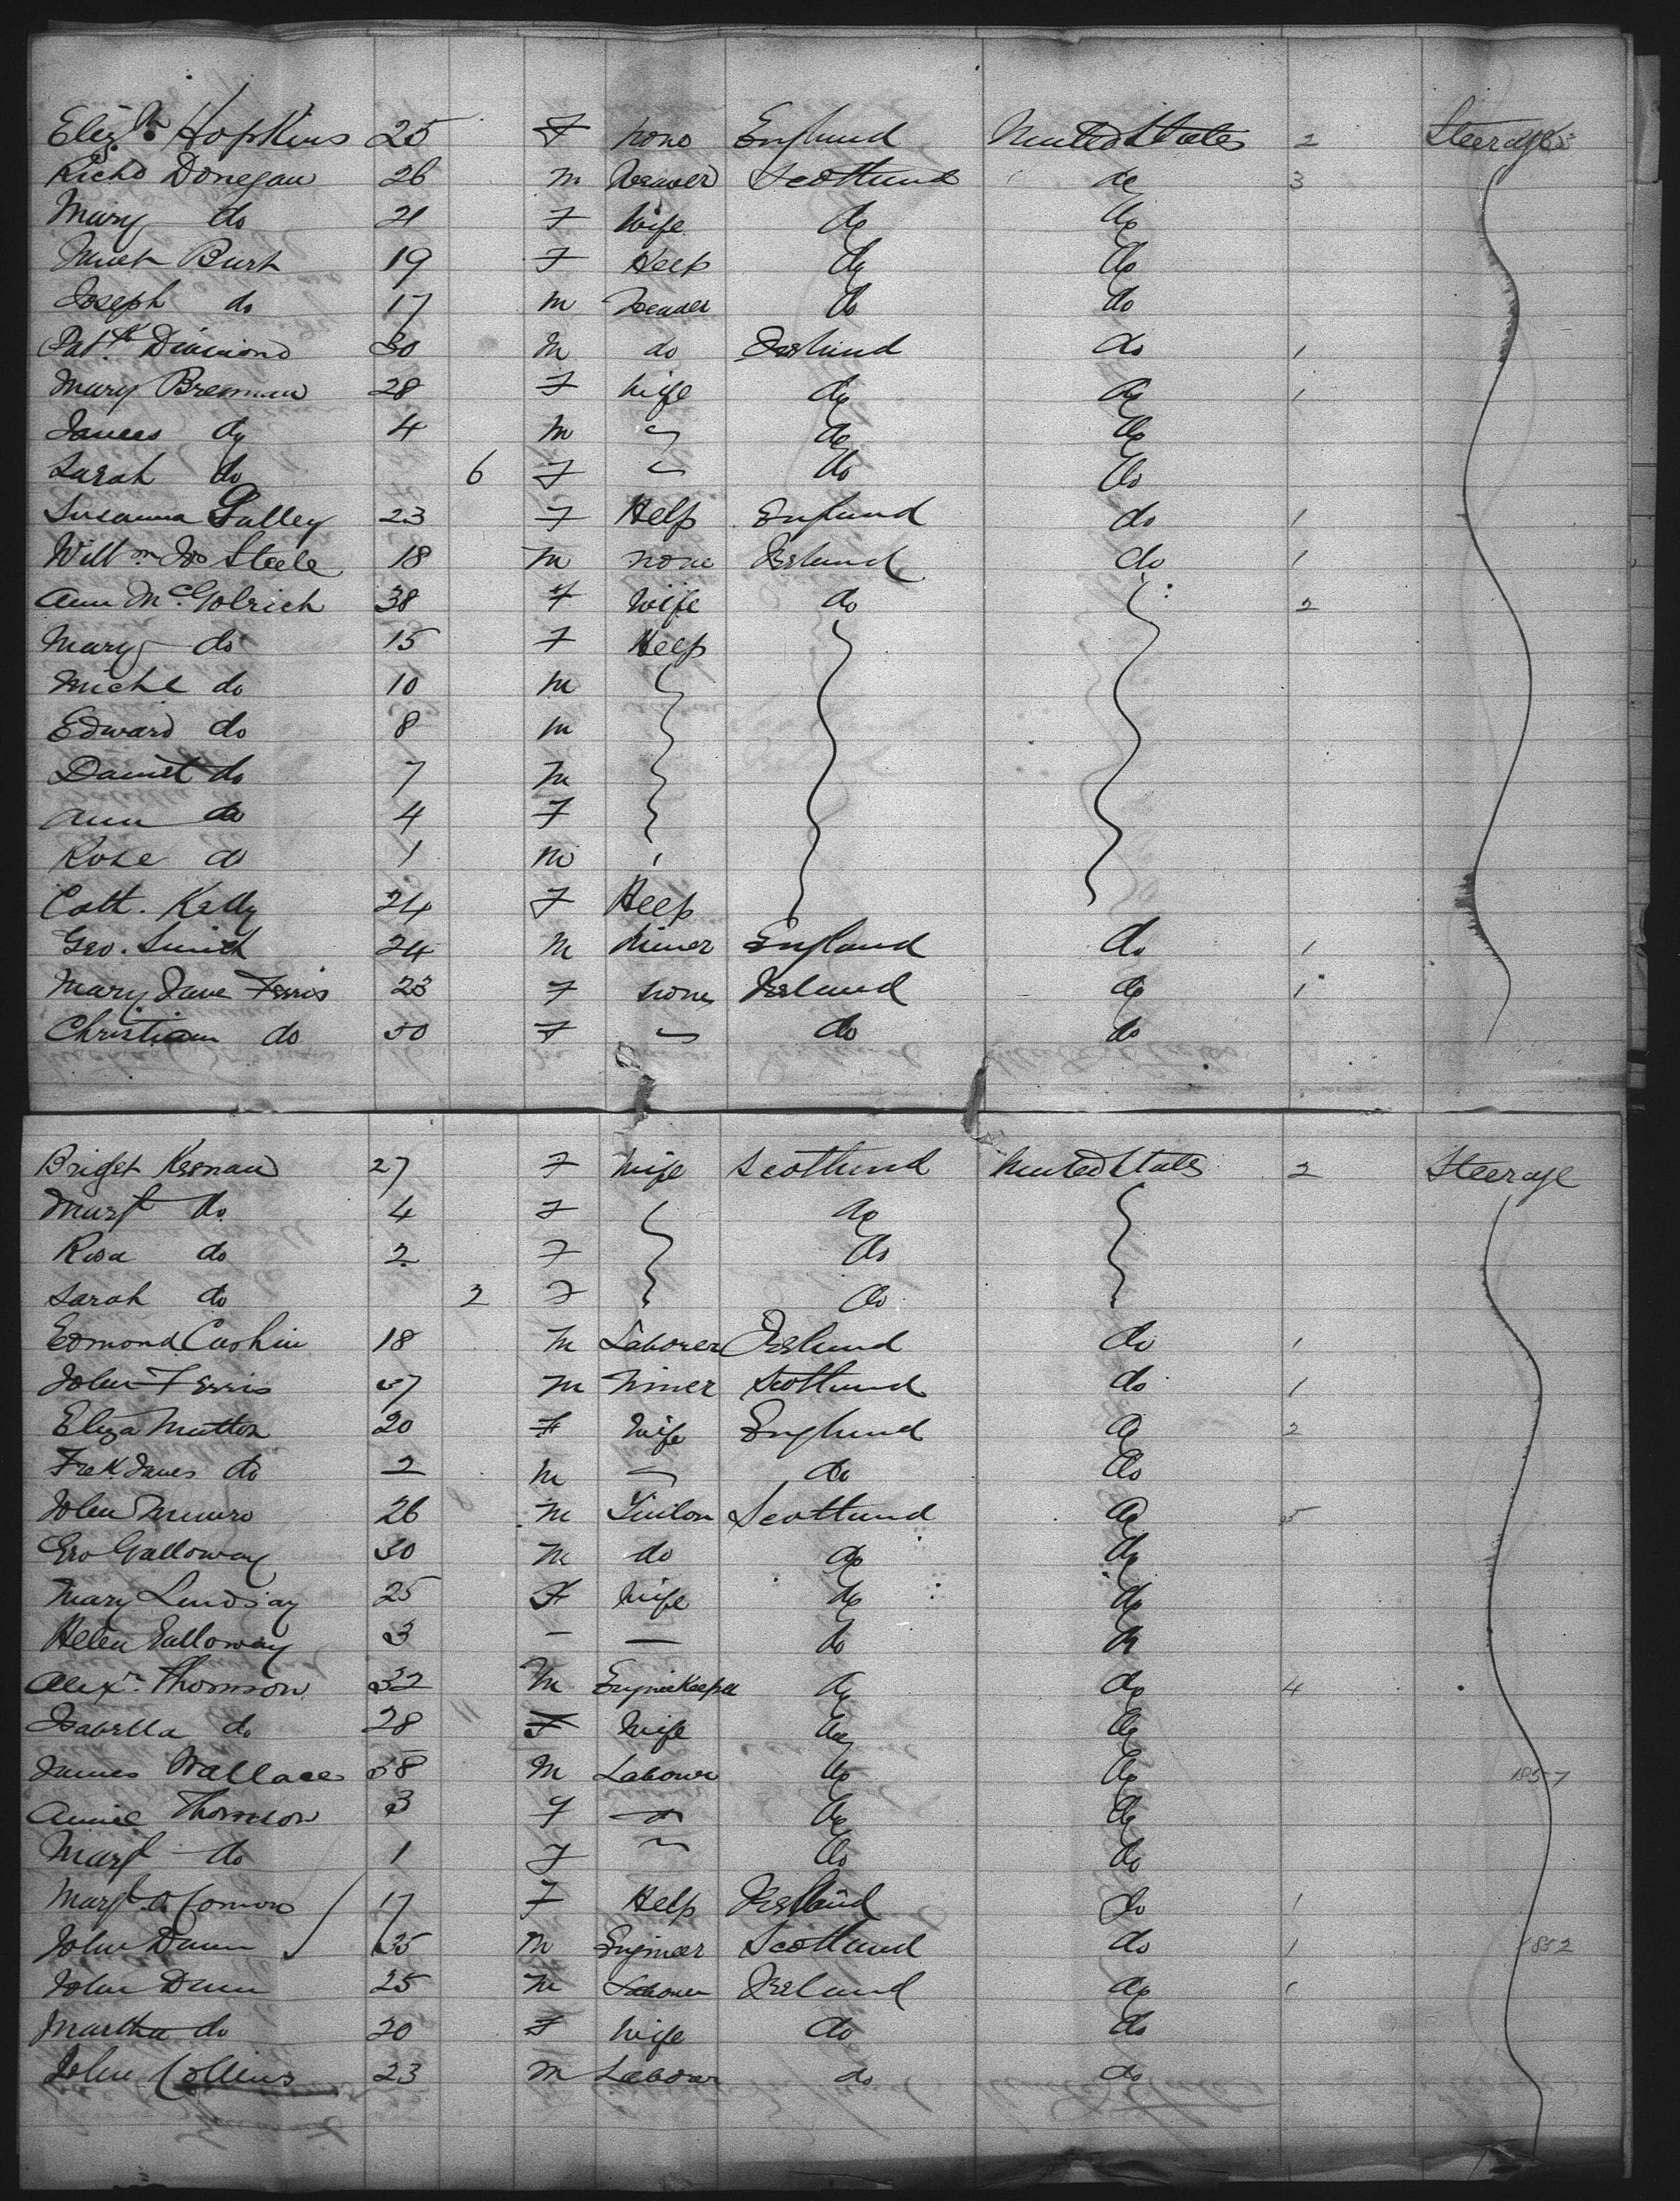 Eliz.th Hopkins 25 F none England United States 2 Steerage
Richd Donegan 26 M Weaver Scotland do 3
Mary do 21 F Wife do do
Burt 19 F Help do do
Joseph do 17 M Weaver do do
Pat.k Diamond 30 M do Ireland do 1
Mary Brennan 28 F Wife do do 1
James do 4 M " do do
Sarah do 6 F " do do
Susanna Galley 23 F Help England do 1
Will.m Jno Steele 18 M none Ireland do 1
Ann Mc.Golrich 38 F Wife do 2
Mary do 15 F Help
Michl do 10 M
Edward do 8 M
Daniel do 7 M
Ann do 4 F
Rose do 1 M
Cath. Kelly 24 F Help
Geo. Smith 24 M Miner England do 1
Mary Jane Ferris 23 F none Ireland do 1
Christian do 50 F " do do
Bridget Keenan 27 F Wife Scotland United States 2 Steerage
Margt do 4 F do
Rosa do 2 F do
Sarah do 2 F do
Edmond Cashin 18 M Laborer Ireland do 1
John Ferris 57 M Miner Scotland do 1
Eliza Mutton 20 F Wife England do 2
Fredk James do 2 M do do
John Munro 26 M Scotland do 5
Geo Galloway 30 M do do do
Mary Lindsay 25 F Wife do do
Helen Galloway 3 — — do do
Alexr. Thomson 32 M Enginekeeper do do 4
Isabella do 28 F Wife do do
James Wallace 58 M Laborer do do 1857
Annie Thomson 3 F do do
Margt do 1 F do do
Margt O Connors 17 F Help Ireland do 1
John Dunn 35 M Engineer Scotland do 1 1852
John Dunn 25 M Laborer Ireland do 1
Martha do 20 F Wife do do
John Collins 23 M Laborer do do